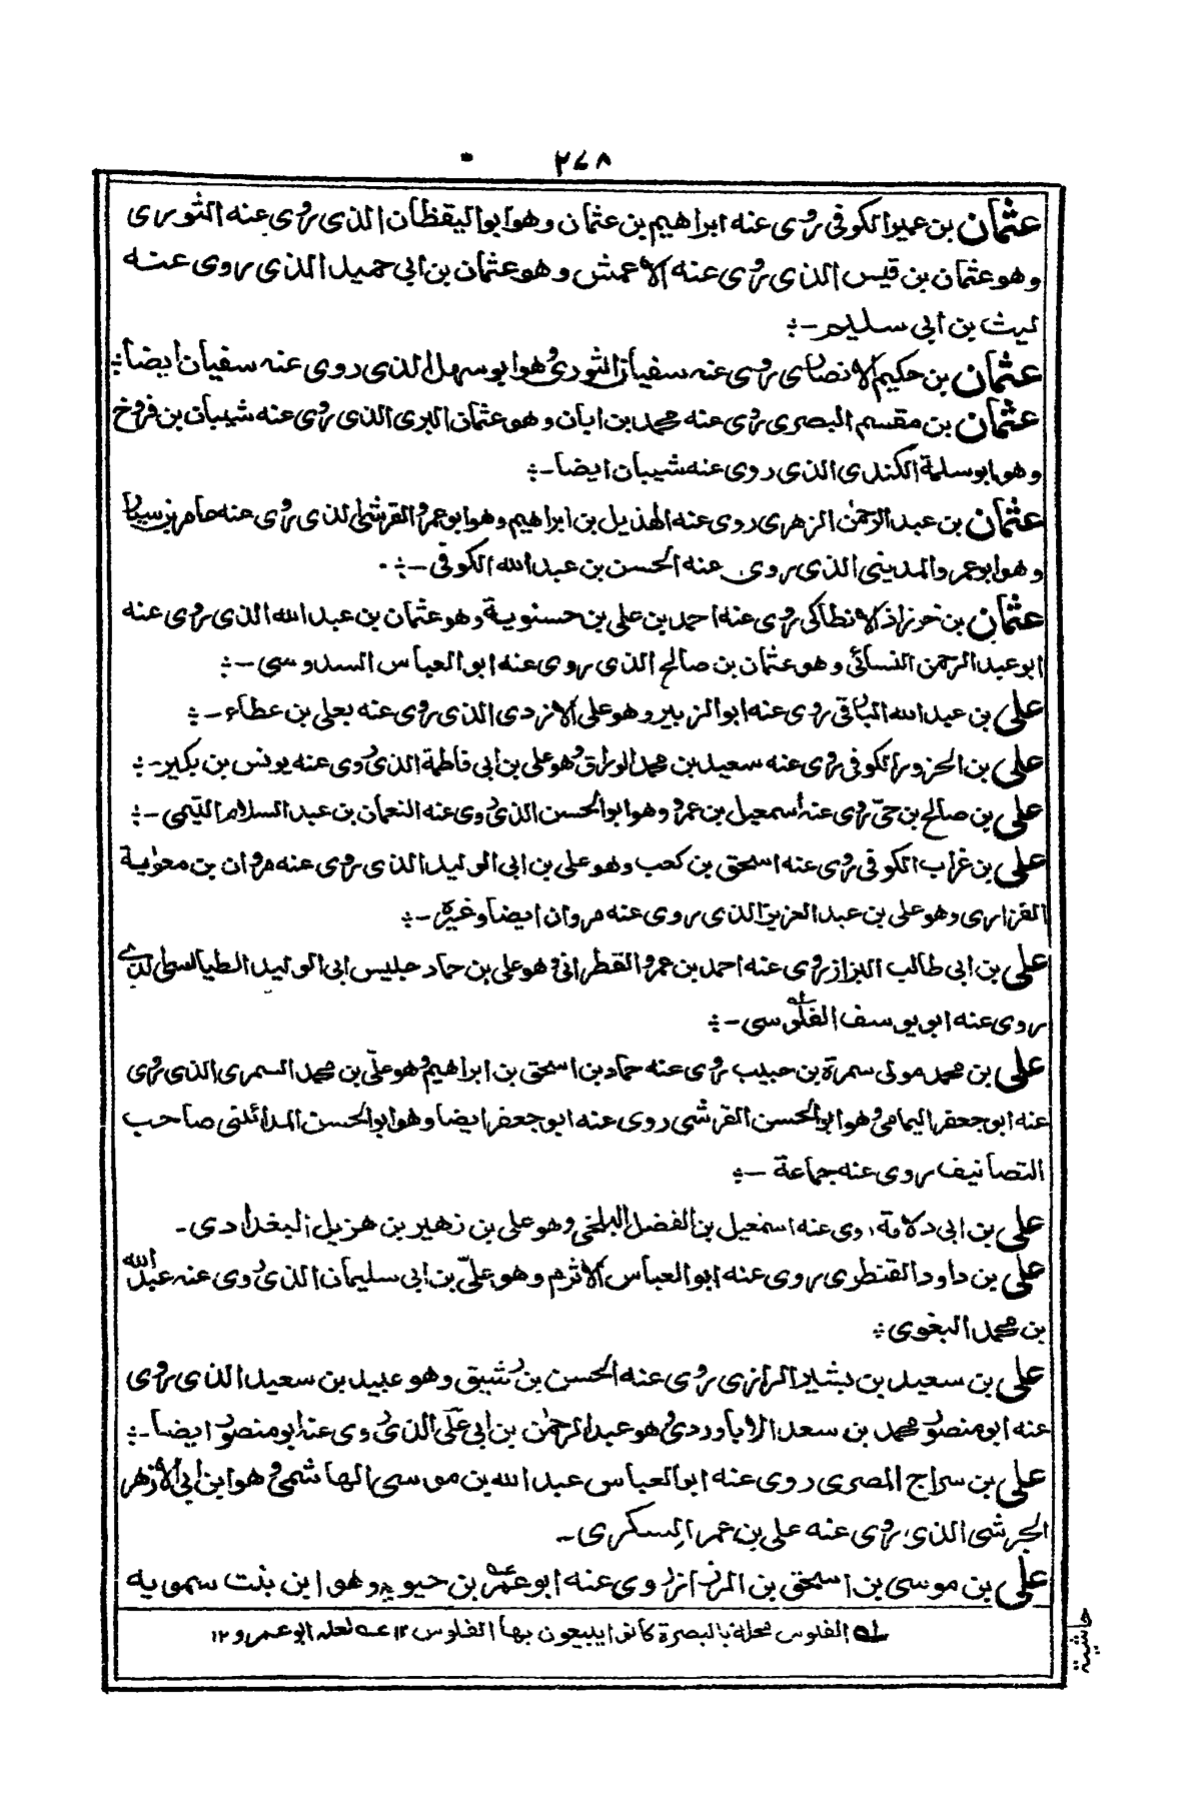 ٢٦٨
عثمان بن عمير الكوفى روى عنه ابراهيم بن عثمان وهو ابو اليقظان الذى روى عنه الثورى
وهو عثمان بن قيس الذى روى عنه الاعمش وهو عثمان بن ابى حميد الذى روى عنه
ليث بن ابى سليم -
عثمان بن حكيم الانصارى روى عنه سفيان الثورى وهو ابو سهل الذى روى عنه سفيان ايضا
عثمان بن مقسم البصرى روى عنه محمد بن ابان وهو عثمان البرى الذى روى عنه شيبان بن فروخ
وهو ابو سلمة الكندى الذى روى عنه شيبان ايضا -
عثمان بن عبد الرحمن الزهرى روى عنه الهذيل بن ابراهيم وهو ابو عمرو القرشى الذى روى عنه عامر بن سيار
وهو ابو عمرو المدينى الذى روى عنه الحسن بن عبد الله الكوفى -
عثمان بن خرزاذ الانطاكى روى عنه احمد بن على بن حسنوية وهو عثمان بن عبد الله الذى روى عنه
ابو عبد الرحمن النسائى وهو عثمان بن صالح الذى روى عنه ابو العباس السدوسى -
على بن عبد الله البارقى روى عنه ابو الزبير وهو على الازدى الذى روى عنه يعلى بن عطاء -
على بن الحزور الكوفى روى عنه سعيد بن محمد الوراق وهو على بن ابى فاطمة الذى روى عنه يونس بن بكير -
على بن صالح بن حىّ روى عنه اسمعيل بن عمرو وهو ابو الحسن الذى روى عنه النعمان بن عبد السلام التيمى -
على بن غراب الكوفى روى عنه اسحق بن كعب وهو على بن ابى الوليد الذى روى عنه مروان بن معوية
الفزارى وهو على بن عبد العزيز الذى روى عنه مروان ايضا وغيره -
على بن ابى طالب البزاز روى عنه احمد بن عمرو القطرانى وهو على بن حماد جليس ابى الوليد الطيالسى الذى
روى عنه ابو يوسف الفلوسى -
على بن محمد مولى سمرة بن حبيب روى عنه حماد بن اسحق بن ابراهيم وهو علىّ بن محمد السمرى الذى روى
عنه ابو جعفر اليمامى وهو ابو الحسن القرشى روى عنه ابو جعفر ايضا وهو ابو الحسن المدائنى صاحب
التصانيف روى عنه جماعة -
على بن ابى دلامة روى عنه اسمعيل بن الفضل البلخى وهو على بن زهير بن هزيل البغدادى -
على بن داود القنطرى روى عنه ابو العباس الاثرم وهو علىّ بن ابى سليمان الذى روى عنه عبد الله
بن محمد البغوى
على بن سعيد بن بشير الرازى روى عنه الحسن بن رشيق وهو عبيد بن سعيد الذى روى
عنه ابو منصور محمد بن سعد الاباوردى وهو عبد الرحمن بن ابى علىّ الذى روى عنه ابو منصور ايضا -
على بن سراج المصرى روى عنه ابو العباس عبد الله بن موسى الهاشمى وهو ابن ابى الازهر
الجرشى الذى روى عنه على بن عمر السكرى -
على بن موسى بن اسحق بن الرزاز روى عنه ابو عمر بن حيويه وهو ابن بنت سمويه
له الفلوس محلة بالبصرة كانوا يبيعون بها الفلوس ١٢ عه لعله ابو عمرو ١٢
حاشية